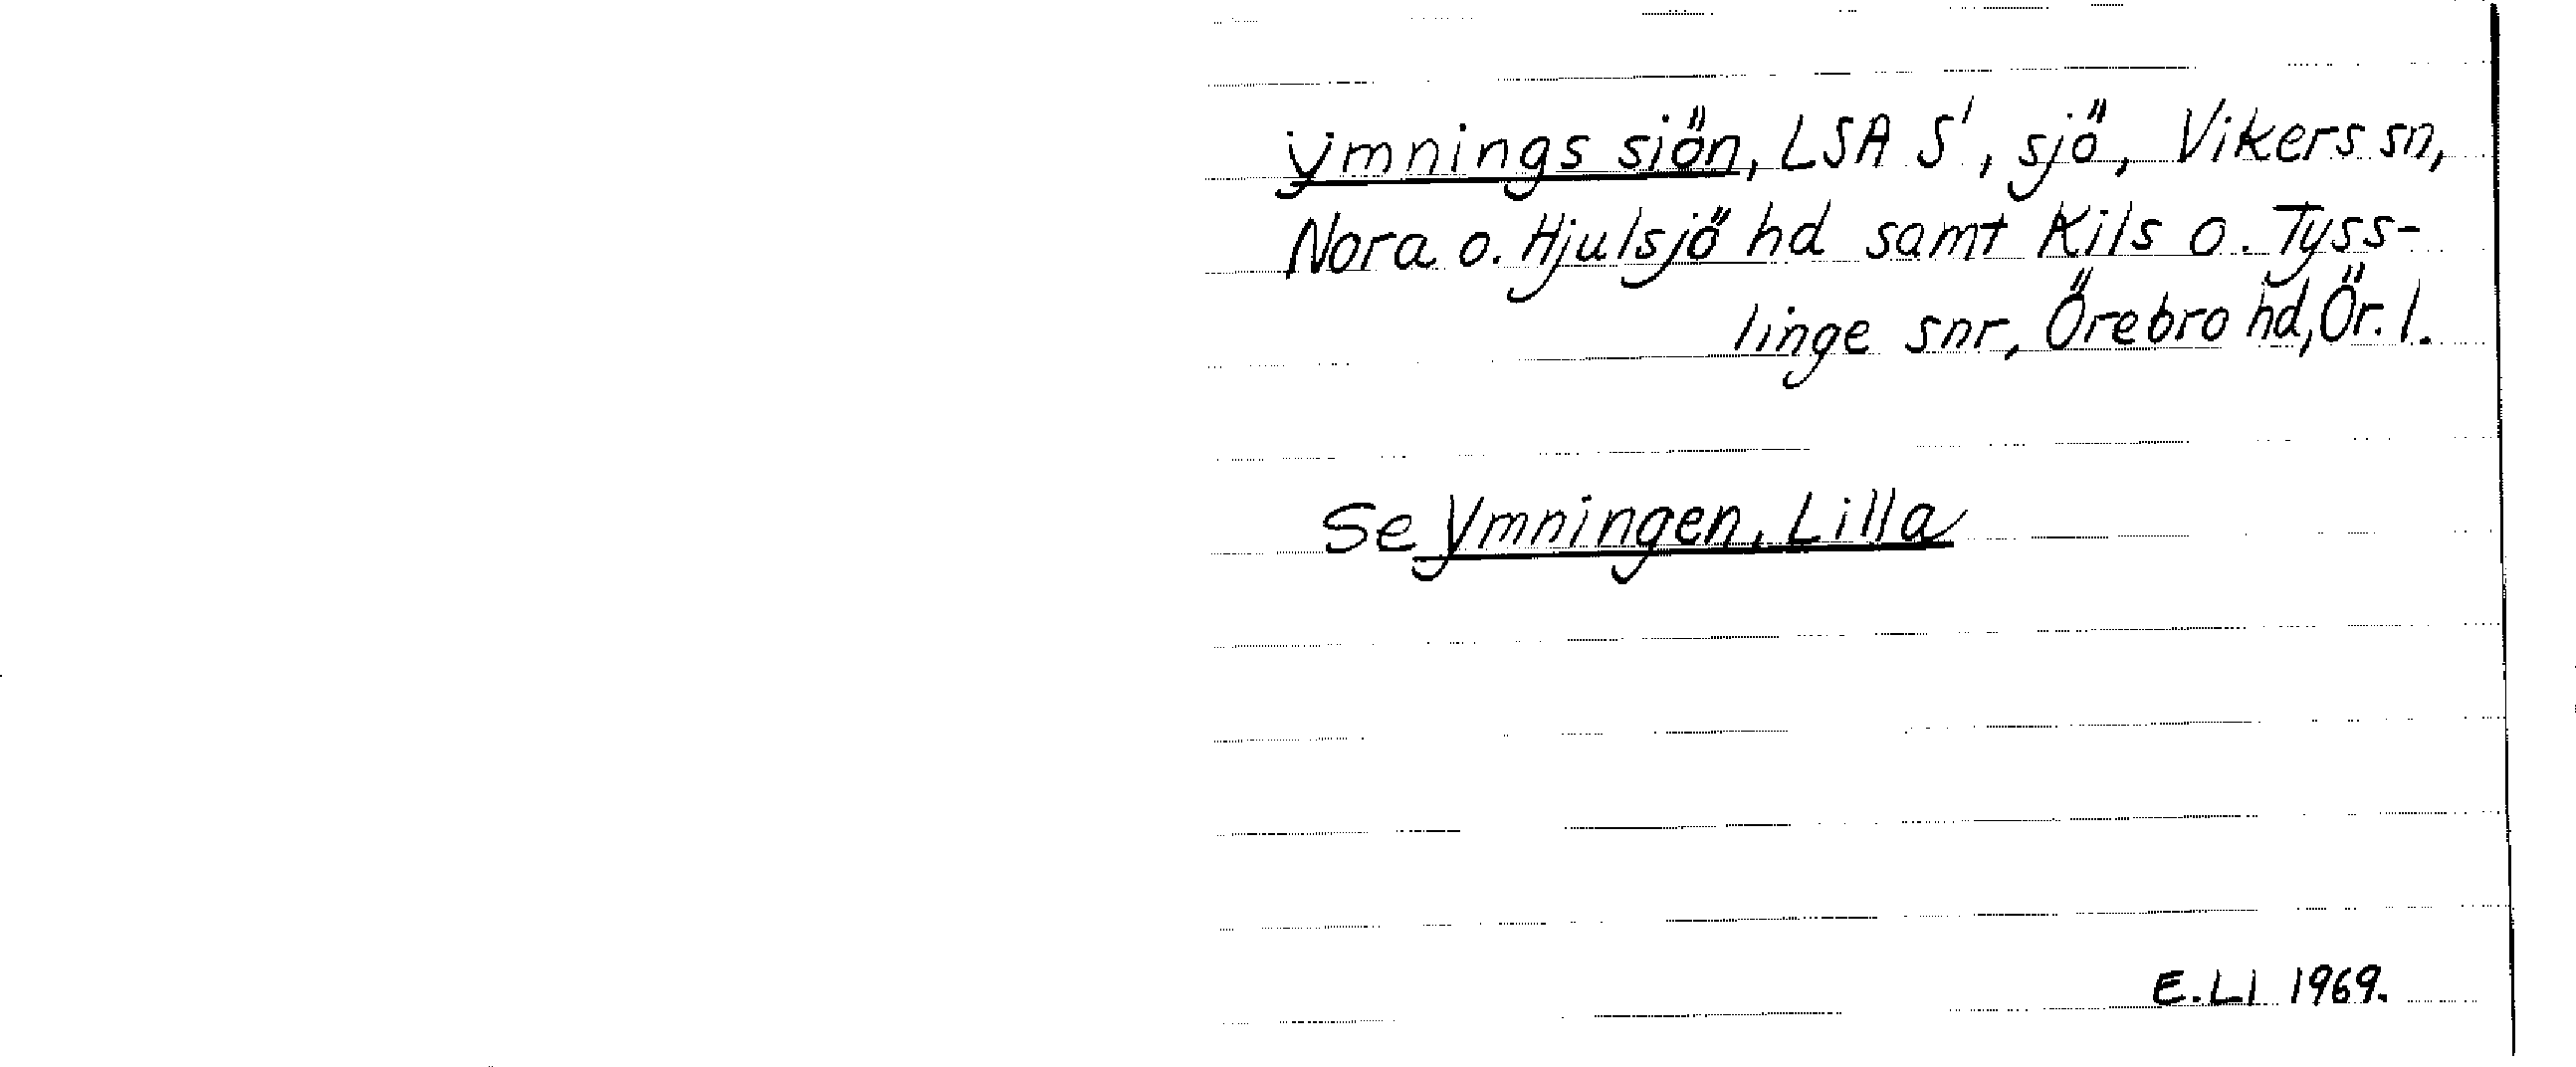 ÿmnings siön, LSA S¹, sjö, Vikers sn,
Nora o. Hjulsjö hd samt Kils o. Tyss-
linge snr, Örebro hd, Ör. l.
Se Ymningen, Lilla
E.LI 1969.